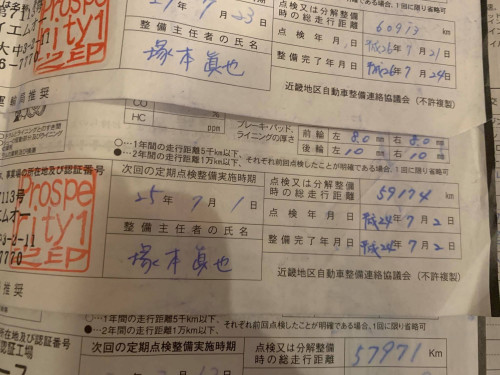 27年7月23日
点検又は分解整備時の総走行距離 60973 km
点検年月日 平成26年7月21日
整備主任者の氏名
塚本真也
整備完了年月日 平成26年7月24日
近畿地区自動車整備連絡協議会(不許複製)
Prospe
rity1
CO
HC ppm
ブレーキ・パッド、ライニングの厚さ
前輪 左 8.0mm 右 8.0mm
後輪 左 10mm 右 10mm
○…1年間の走行距離5千km以下、
●…2年間の走行距離1万km以下、それぞれ前回点検したことが明確である場合、1回に限り省略可
事業場の所在地及び認証番号
次回の定期点検整備実施時期
25年7月1日
点検又は分解整備時の総走行距離 59174 km
点検年月日 平成24年7月2日
整備主任者の氏名
塚本真也
整備完了年月日 平成24年7月2日
近畿地区自動車整備連絡協議会(不許複製)
Prospe
rity1
7113号
エムオー
7770
○…1年間の走行距離5千km以下、
●…2年間の走行距離1万km以下、それぞれ前回点検したことが明確である場合、1回に限り省略可
所在地及び認証番号
認証工場
次回の定期点検整備実施時期
点検又は分解整備時の総走行距離 57971 Km